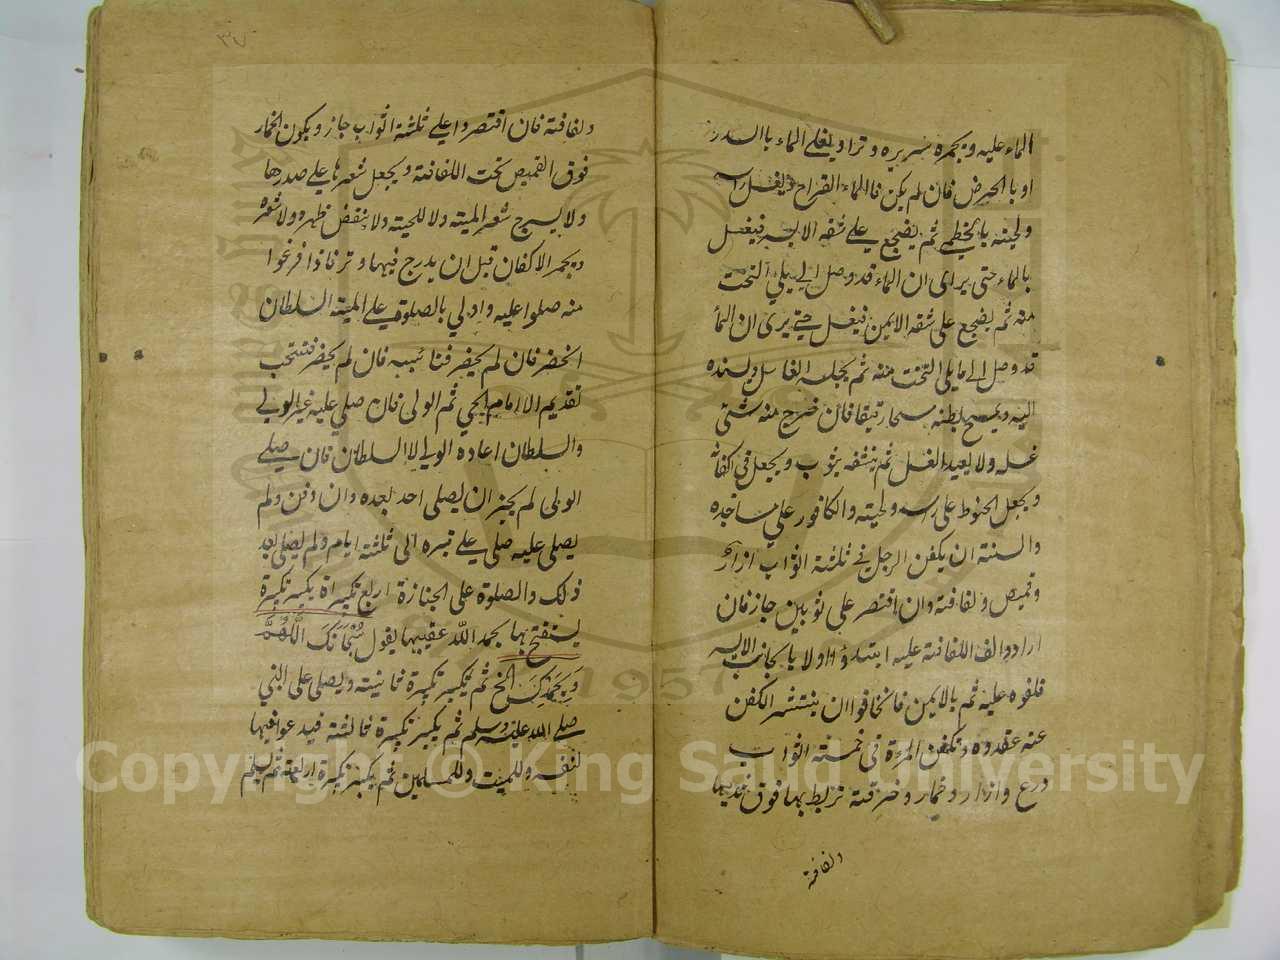 الماء عليه ويجمره سريره وترا ويغلى الماء بالسدر
او بالحرض فان لم يكن فالماء القراح ويغسل راسه
ولحيته بالخطمى ثم يضجع على شقه الايسر فيغسل
بالماء حتى يراى ان الماء قد وصل الى يلي التحت
منه ثم يضجع على شقه الايمن فيغسل حتى يرى ان الماء
قد وصل الى مايلى التخت منه ثم يجلسه الغاسل ويسنده
اليه ويمسح بطنه مسحا رقيقا فان خرج منه شئى
غسله ولا يعيد الغسل ثم ينشفه بثوب ويجعل فى اكفانه
ويجعل الحنوط على راسه ولحيته والكافور على مساجده
والسنة ان يكفن الرجل فى ثلثة اثواب ازار
وقميص ولفافة وان اقتصر على ثوبين جاز فان
ارادوا لف اللفافة عليه ابتدؤا اولا بالجانب الايسر
فلفوه عليه ثم بالايمن فان خافوا ان ينتشر الكفن
عنه عقدوه وتكفن المرءة فى خمسة اثواب
درع وازار وخمار وخرقة تربط بها فوق ثدييها
ولفافة
ولفافة فان اقتصروا على ثلثة اثواب جاز ويكون الخمار
فوق القميص تحت اللفافة ويجعل شعرها على صدرها
ولا يسرح شعر الميته ولا للحيته ولا ينقض ظهره ولا شعره
ويجمر الاكفان قبل ان يدرج فيها وترفاذا فرغوا
منه صلوا عليه واولى بالصلوة على الميته السلطان
انحضر فان لم يحضر فنائبه فان لم يحضر فتستحب
تقديم الامام الحي ثم الولى فان صلى عليه غير الولى
والسلطان اعاده الولى لا السلطان فان صلى
الولى لم يجز ان يصلى احد بعده وان دفن ولم
يصلى عليه صلى على قبره الى ثلثة ايام ولم يصلى بعد
ذلك والصلوة على الجنازة اربع تكبيراة يكبير تكبيرة
يستفتح بها بحمد الله عقيبها يقول سُبْحَانَكَ اللَّهُمَّ
وَبِحَمْدِكَ الخ ثم يكبير تكبيرة ثانيته ويصلى على النبي
صلى الله عليه وسلم ثم يكبير تكبيرة ثالثة فيدعوا فيها
لنفسه وللميت وللمسلمين ثم يكبير تكبيرة اربعة ثم يسلم
1957
Copyright © King Saud University